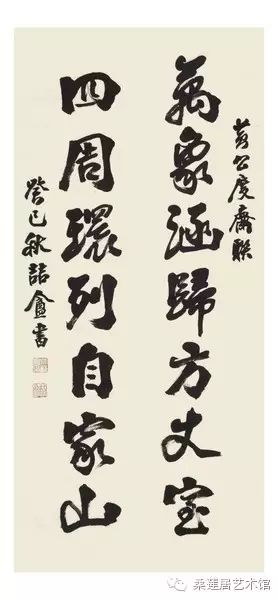 黄公度齋聯
萬象涵歸方丈室
四周環列自家山
癸巳秋詰盦書
蓮居艺术馆